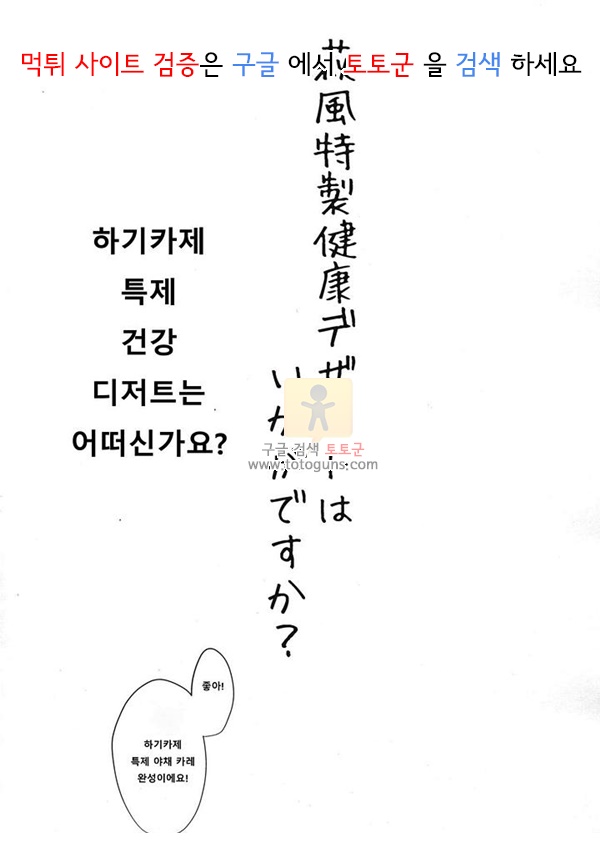 먹튀 사이트 검증은 구글 에서 토토군 을 검색 하세요
萩風特製健康デザートは
いかがですか?
하기카제
특제
건강
디저트는
어떠신가요?
구글 검색 토토군
www.totoguns.com
좋아!
하기카제
특제 야채 카레
완성이에요!